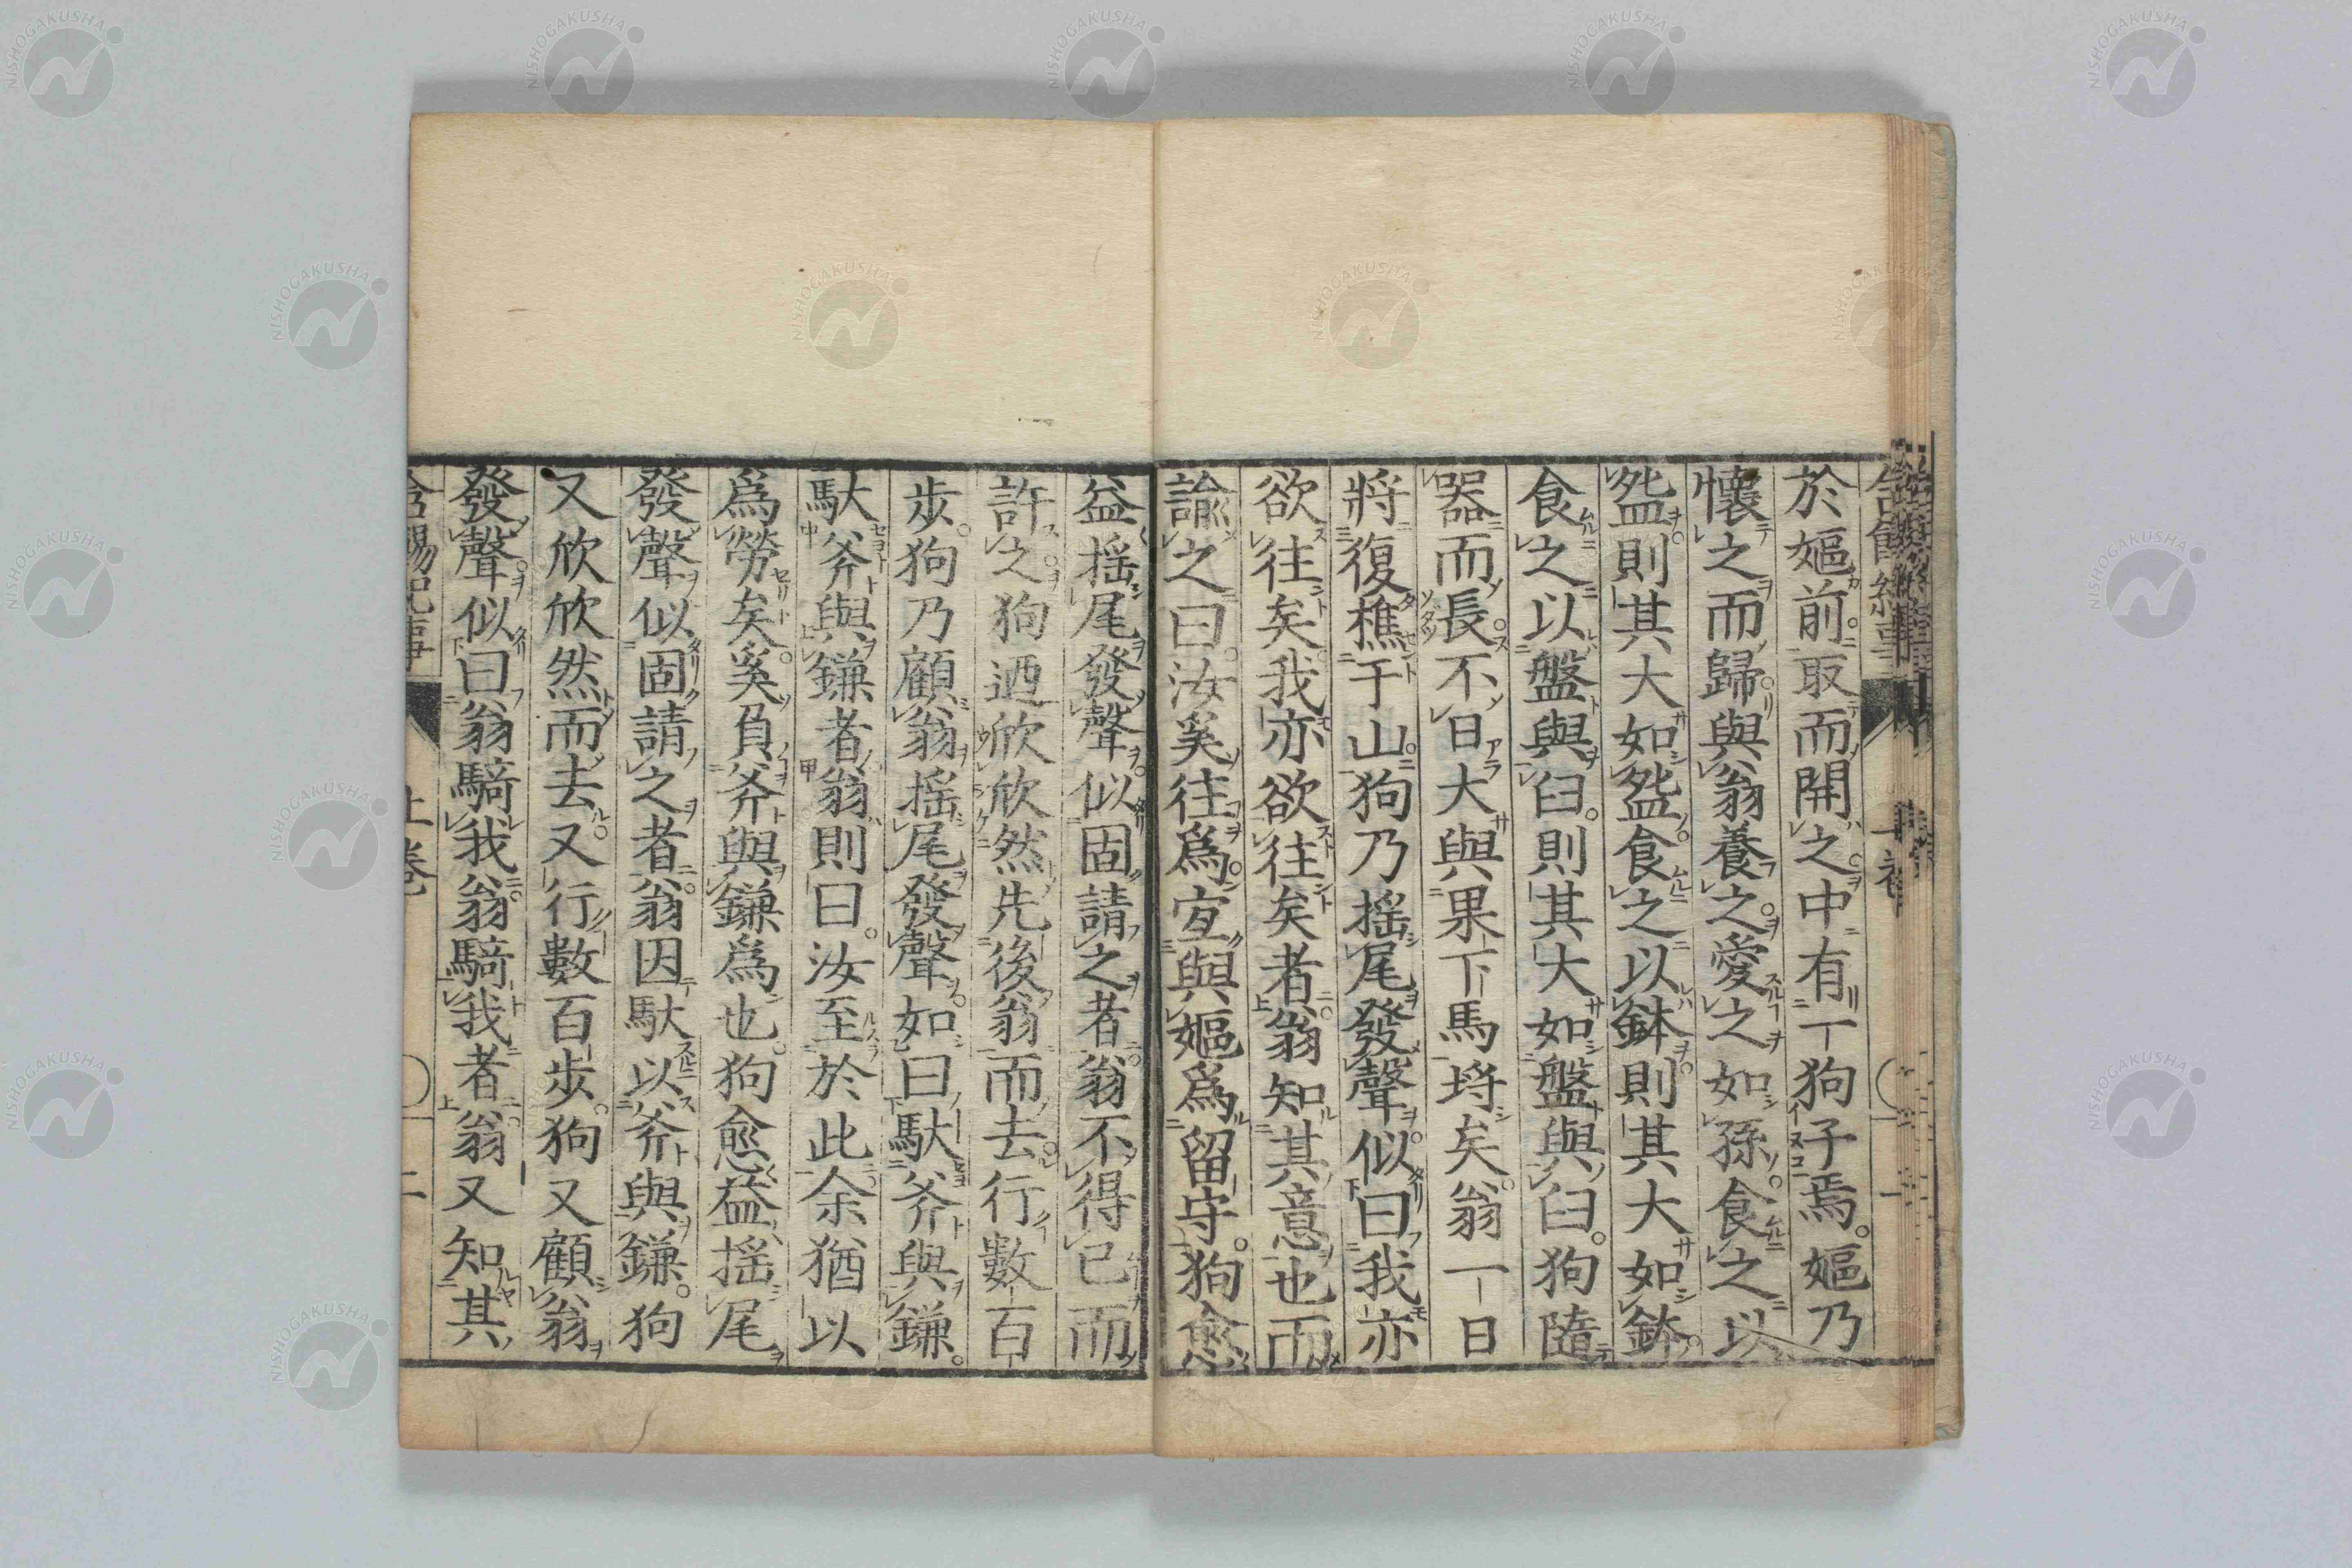 於嫗前取而開之中有一狗子焉嫗乃
懷之而歸與翁養之愛之如孫食之以
盌則其大如盌食之以鉢則其大如鉢
食之以盤與臼則其大如盤與臼狗隨
器而長不日大與果下馬埒矣翁一日
將復樵于山狗乃揺尾發聲似曰我亦
欲往矣我亦欲往矣者翁知其意也而
諭之曰汝奚往爲宜與嫗爲留守狗愈
益揺尾發聲似固請之者翁不得已而
許之狗迺欣欣然先後翁而去行數百
歩狗乃顧翁揺尾發聲如曰馱斧與鎌
馱斧與鎌者翁則曰汝至於此余猶以
爲勞矣奚負斧與鎌爲也狗愈益揺尾
發聲似固請之者翁因馱以斧與鎌狗
又欣欣然而去又行數百歩狗又顧翁
發聲似曰翁騎我翁騎我者翁又知其
上巻
二
NISHOGAKUSHA